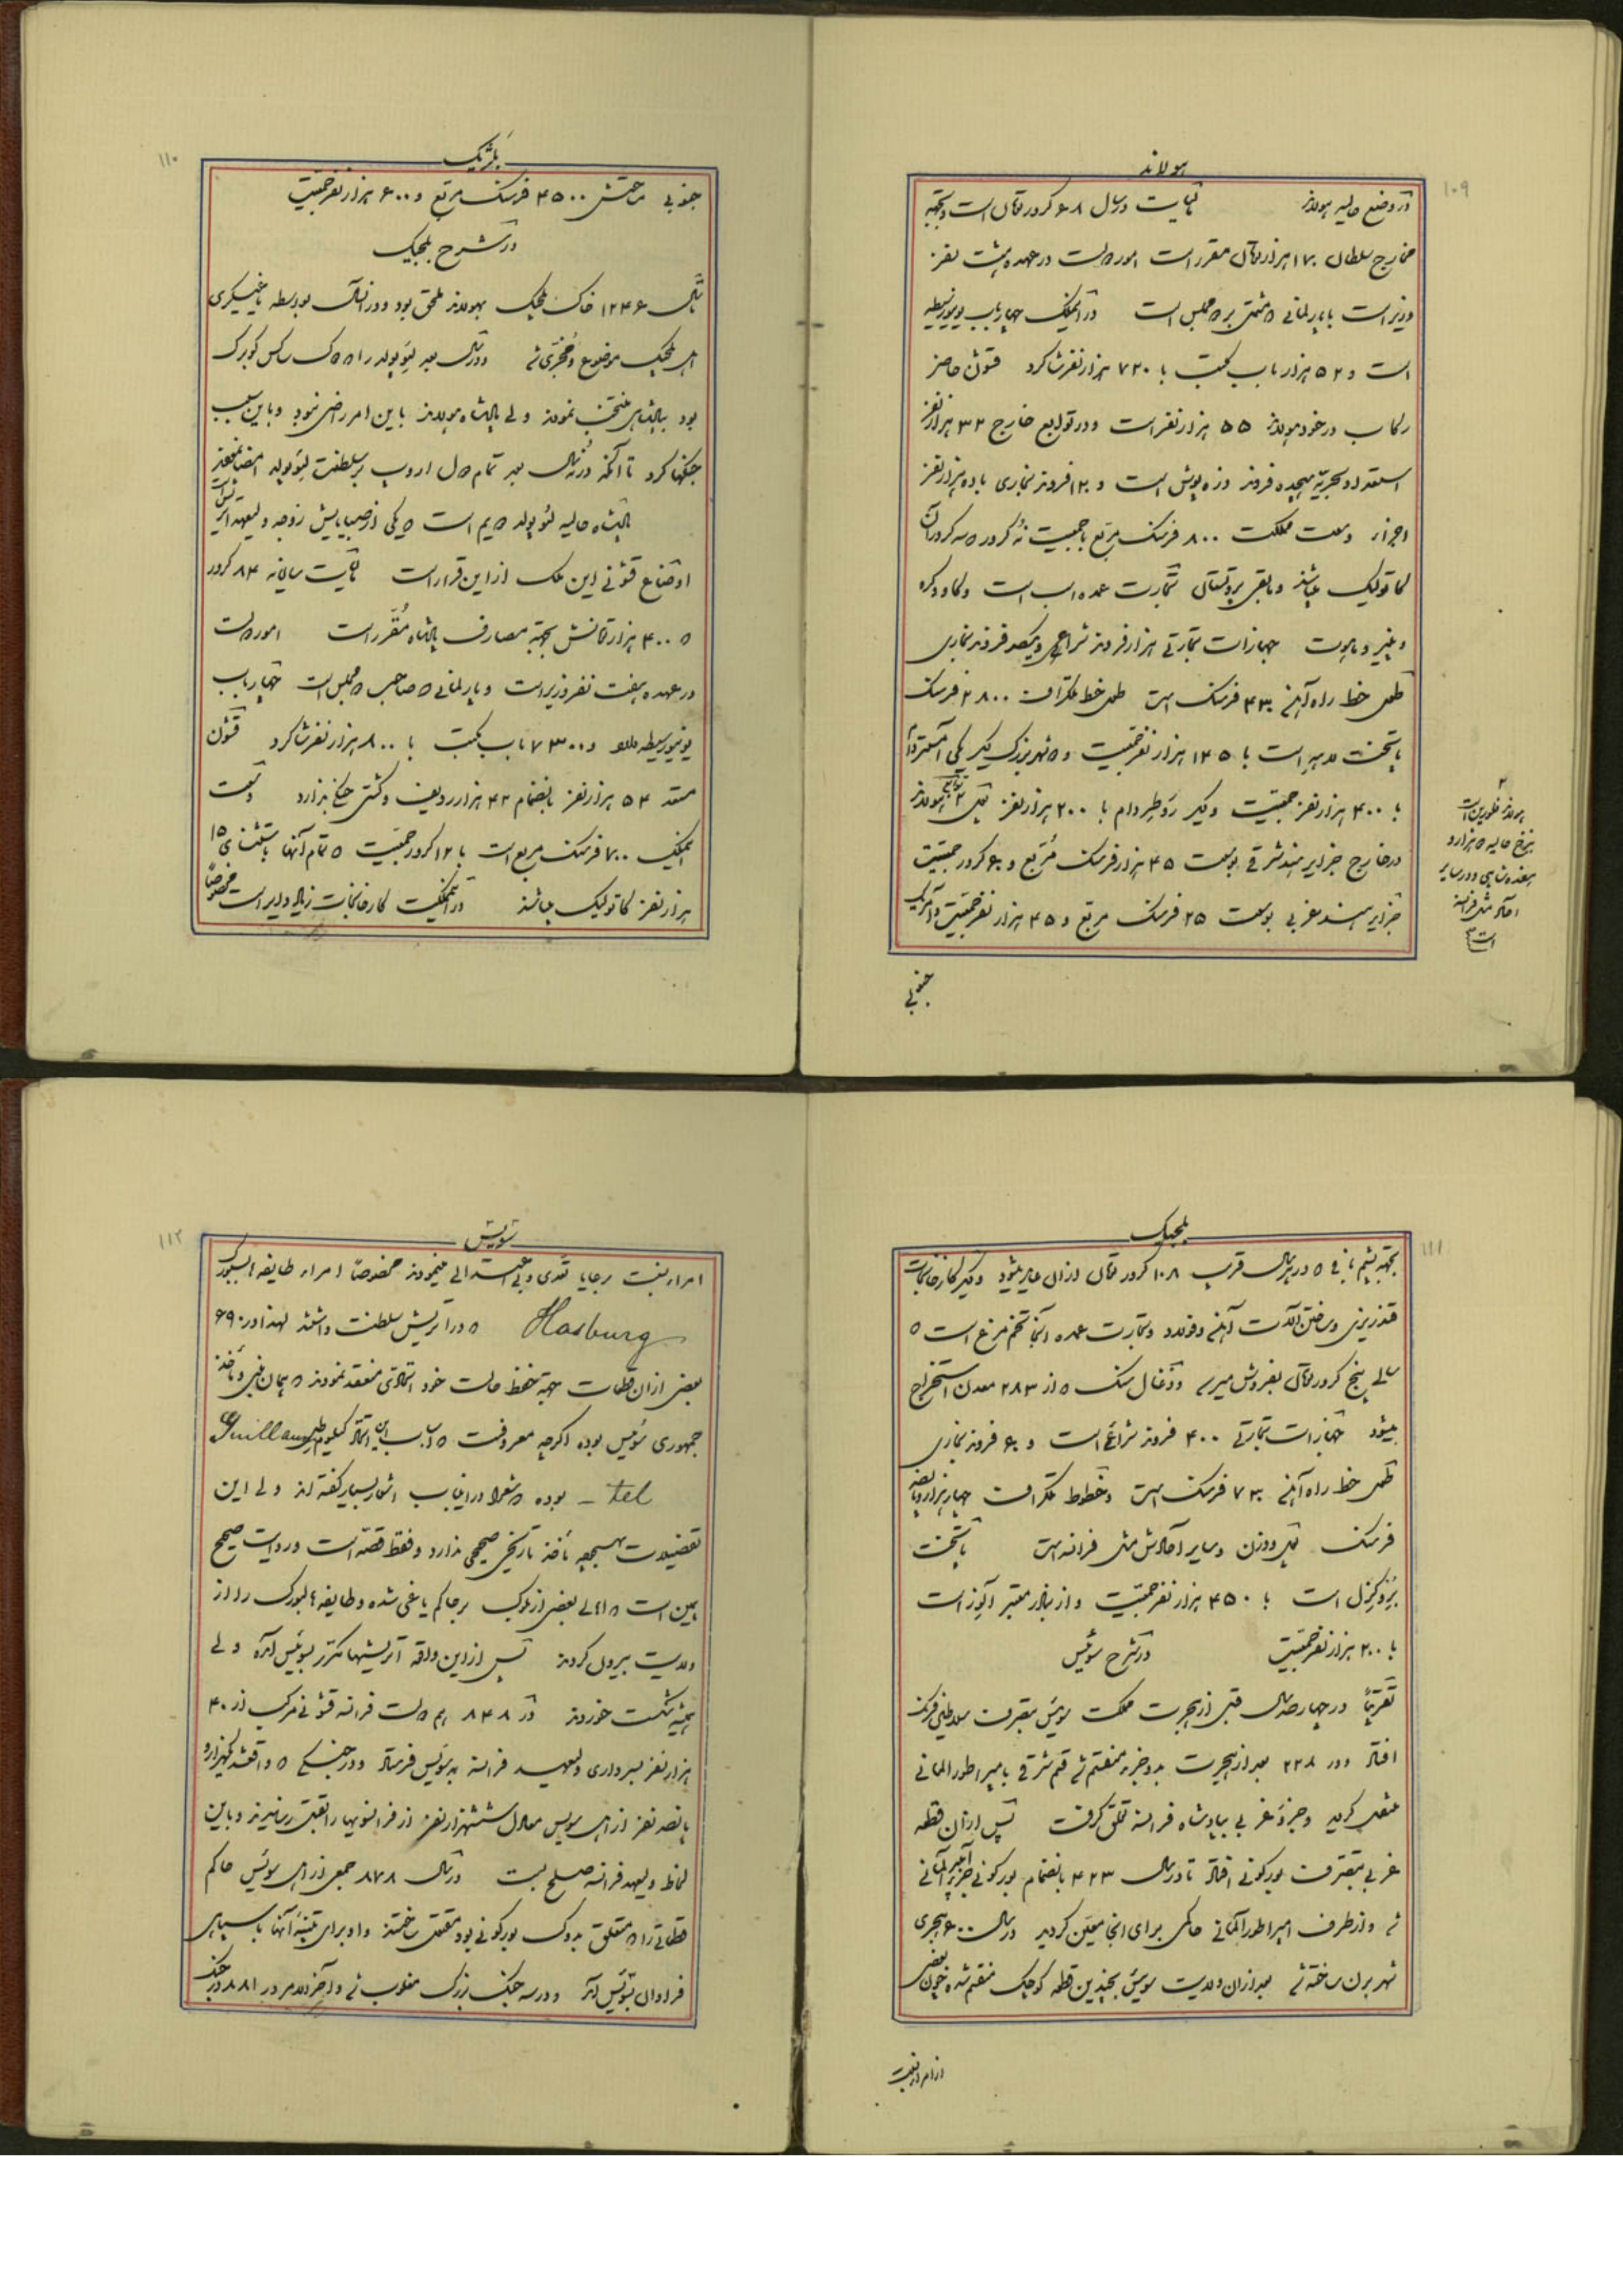 ۱۰۹
هولاند
در وضع حالیه هولاند مالیات در سال ۶۸ کرور تومان است و بجهة
مخارج سلطان ۱۲۰ هزار تومان مقرر است امور دولت در عهده هشت نفر
وزیر است با پارلمانی که مشتمل بر دو مجلس است در آنملک چهار باب یونیورسیطه
است و ۵۲ هزار باب مکتب با ۷۲۰ هزار نفر شاگرد قشون حاضر
رکاب در خود هولاند ۵۵ هزار نفر است و در توابع خارج ۳۲ هزار نفر
استعداد بحریه هیجده فروند زره پوش است و ۱۲۰ فروند بخاری با ده هزار نفر
اجزاء وسعت مملکت ۸۰۰ فرسنک مربع با جمعیت نه کرور که سه کرور آن
کاتولیک میباشند و مابقی پروتستان تجارت عمده اسب است و گاو و کره
و پنیر و ماهوت جهازات تجارتی هزار فروند شراعی و یکصد فروند بخاری
طول خط راه آهن ۴۳۰ فرسنک است طول خط تلکراف ۲۸۰۰ فرسنک
پایتخت لاهه است با ۱۴۵ هزار نفر جمعیت و دو شهر بزرک دیگر یکی آمستردام
با ۴۰۰ هزار نفر جمعیت و دیکر روطردام با ۲۰۰ هزار نفر توابع هولاند
در خارج جزایر هند شرقی بوسعت ۴۵ هزار فرسنک مربع و ۶۰ کرور جمعیت
جزایر هند غربی بوسعت ۲۵ فرسنک مربع و ۴۵ هزار نفر جمعیت و آمریک
جنوبی
۲
هولاند فلورین است
بنرخ حالیه دو هزار و
هفده شاهی و در سایر
آحاد مثل فرانسه
است
۱۱۰
بلژیک
جنوبی مساحتش ۴۵۰۰ فرسنک مربع و ۶۰۰ هزار نفر جمعیت
در شرح بلجیک
تا سال ۱۲۴۶ خاک بلجیک بهولاند ملحق بود و در آنسال بواسطه یاغیگری
اهل بلجیک موضوع و مجزی شد و در سال بعد لئوپولد را که دوک ساکس کوبرک
بود بپادشاهی منتخب نمودند ولی پادشاه هولاند باین امر راضی نبود و باین سبب
جنکها کرد تا آنکه در نه سال بعد تمام دول اروپ بر سلطنت لئوپولد امضا نمودند
پادشاه حالیه لئوپولد دویم است که یکی از صبایایش زوجه ولیعهد اتریش است
اوضاع قشونی این ملک از این قرار است مالیات سالیانه ۸۴ کرور
که ۴۰۰ هزار تومانش بجهة مصارف پادشاه مقرر است امور دولت
در عهده هفت نفر وزیر است و پارلمانی که صاحب دو مجلس است چهار باب
یونیورسیطه دارد و ۷۳۰۰ باب مکتب با ۸۰۰ هزار نفر شاگرد قشون
مستعد ۵۴ هزار نفر بانضمام ۴۲ هزار ردیف و کشتی جنگی ندارد وسعت
آنملک ۷۰۰ فرسنک مربع است با ۱۲ کرور جمعیت که تمام آنها باستثنای ۱۵
هزار نفر کاتولیک میباشند در آن مملکت کارخانجات زیاد دایر است خصوصاً
۱۱۱
بلجیک
بجهة پشم بافی که در هر سال قریب ۱۰۸ کرور تومان از آن عاید میشود و دیکر کارخانجات
قندریزی و ساختن آلات آهنی و فولاد و تجارت عمده آنجا تخم مرغ است که
سالی پنج کرور تومان بفروش میرسد و ذغال سنک که از ۲۸۳ معدن استخراج
میشود جهازات تجارتی ۴۰۰ فروند شراعی است و ۶۰ فروند بخاری
طول خط راه آهن ۷۳۰ فرسنک است و خطوط تلکراف چهار هزار و پانصد
فرسنک پول و وزن و سایر آحادش مثل فرانسه است پایتخت
بروکزل است با ۴۵۰ هزار نفر جمعیت و از بنادر معتبر آنورز است
با ۲۰۰ هزار نفر جمعیت در شرح سوئیس
تقریباً در چهار صد سال قبل از هجرت مملکت سوئیس بتصرف سلاطین فرنک
افتاد و در ۲۲۸ بعد از هجرت بدو جزء منقسم شد قسم شرقی بامپراطور المانی
منتقل کردید و جزء غربی بپادشاه فرانسه تعلق گرفت پس از آن قطعه
غربی بتصرف بورکونی افتاد تا در سال ۴۲۳ بانضمام بورکونی جزء امپراطوری آلمانی
شد و از طرف امپراطور آلمانی حاکمی برای آنجا معین کردید در سال ۶۰۰ هجری
شهر برن ساخته شد بعد از آن ولایت سوئیس بچندین قطعه کوچک منقسم شد و چون بعضی
از امراء نسبت
۱۱۲
سویس
امراء نسبت برعایا تعدی و بی اعتدالی مینمودند خصوصاً امراء طایفه هابسبورک
Hasburg که در آتریش سلطنت داشتند لهذا در ۶۹۰
بعضی از آن قطعات بجهة حفظ حالت خود اتحادی منعقد نمودند که همان بنی و مأخذ
جمهوری سوئیس بوده اگرچه معروفست که اسباب این اتحاد کیلیوم طل Guillaume
tel - بوده و شعرا در این باب اشعار بسیار گفته اند ولی این
تفضیلات بهیچوجه مأخذ تاریخی صحیحی ندارد و فقط قصه است و روایت صحیح
همین است که اهالی بعضی از بلوک بر حاکم یاغی شده و طایفه هابسبورک را از
ولایت بیرون کردند پس از این واقعه آتریشیها مکرر بسوئیس آمده ولی
همیشه شکست خوردند در ۸۴۸ هم دولت فرانسه قشونی مرکب از ۴۰
هزار نفر بسرداری ولیعهد فرانسه به سوئیس فرستاد و در جنگی که واقع شد یکهزار و
پانصد نفر از اهل سویس معادل ششهزار نفر از فرانسویها را بقتل رسانیدند و باین
لحاظ ولیعهد فرانسه صلح بست در سال ۸۷۸ جمعی از اهل سوئیس حاکم
قطعاتی را که متعلق بدوک بورکونی بود مقتول ساختند و او برای تنبیه آنها با سپاهی
فراوان بسوئیس آمد و در سه جنک بزرک مغلوب شد و آخرالامر در ۸۸۱ در جنک